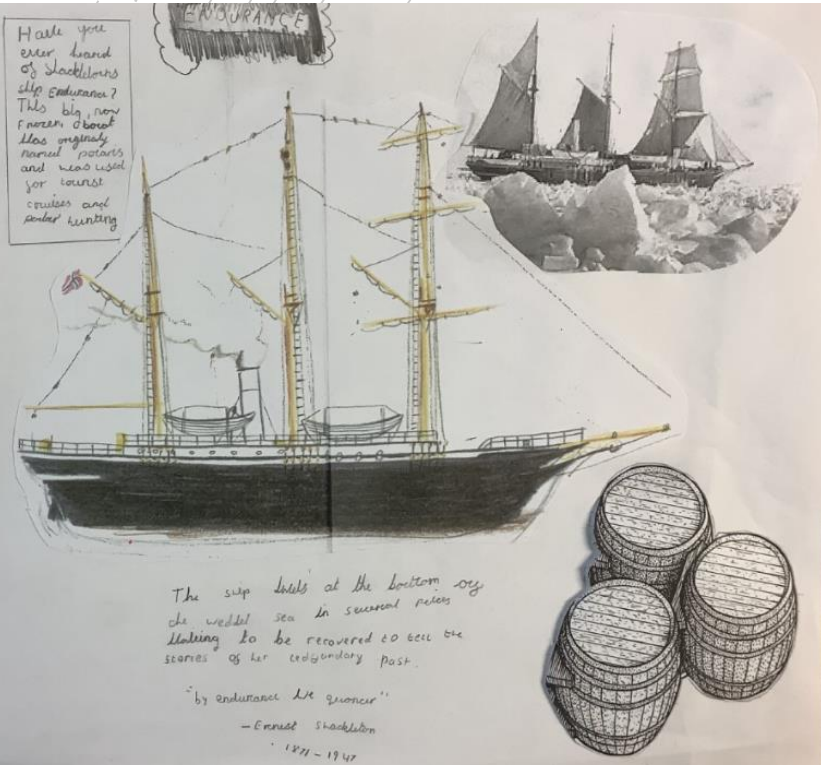 ENDURANCE
Have you
ever heard
of Shackletons
ship Endurance?
This big, now
Frozen, aboat
Was originaly
named polaris
and was used
for tourist
cruises and
polar hunting
The ship at the bottom of
the weddel sea in several peices
Waiting to be recovered to tell the
stories of her ledgondary past.
"by endurance we quoncer"
- Ernest Shackleton
1871-1947